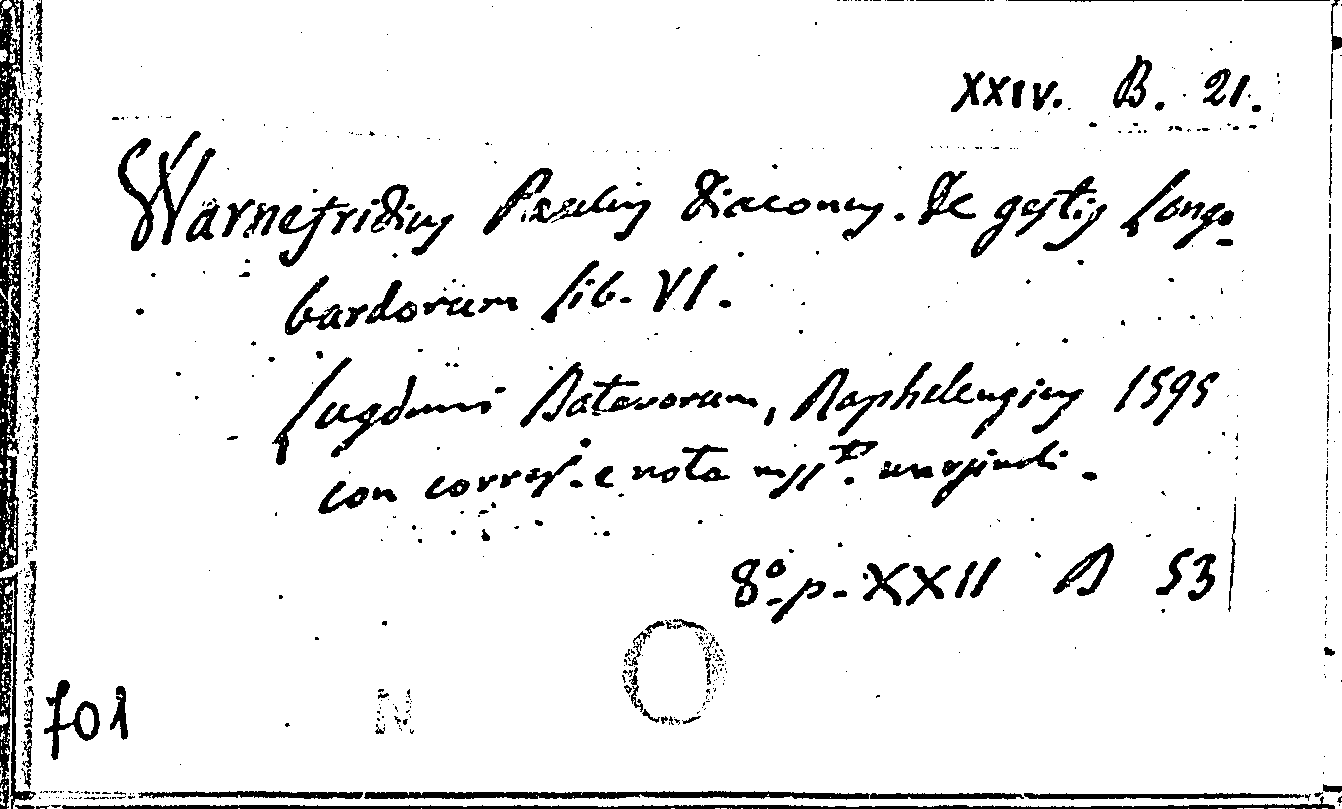 XXIV. B. 21.
Warnefridius Paulus Diaconus. De gestis Longo-
bardorum lib. VI.
Lugduni Batavorum, Raphelengius 1595
con correz. e nota mss.te marginali.
8.º p. XXII B 53
701 N